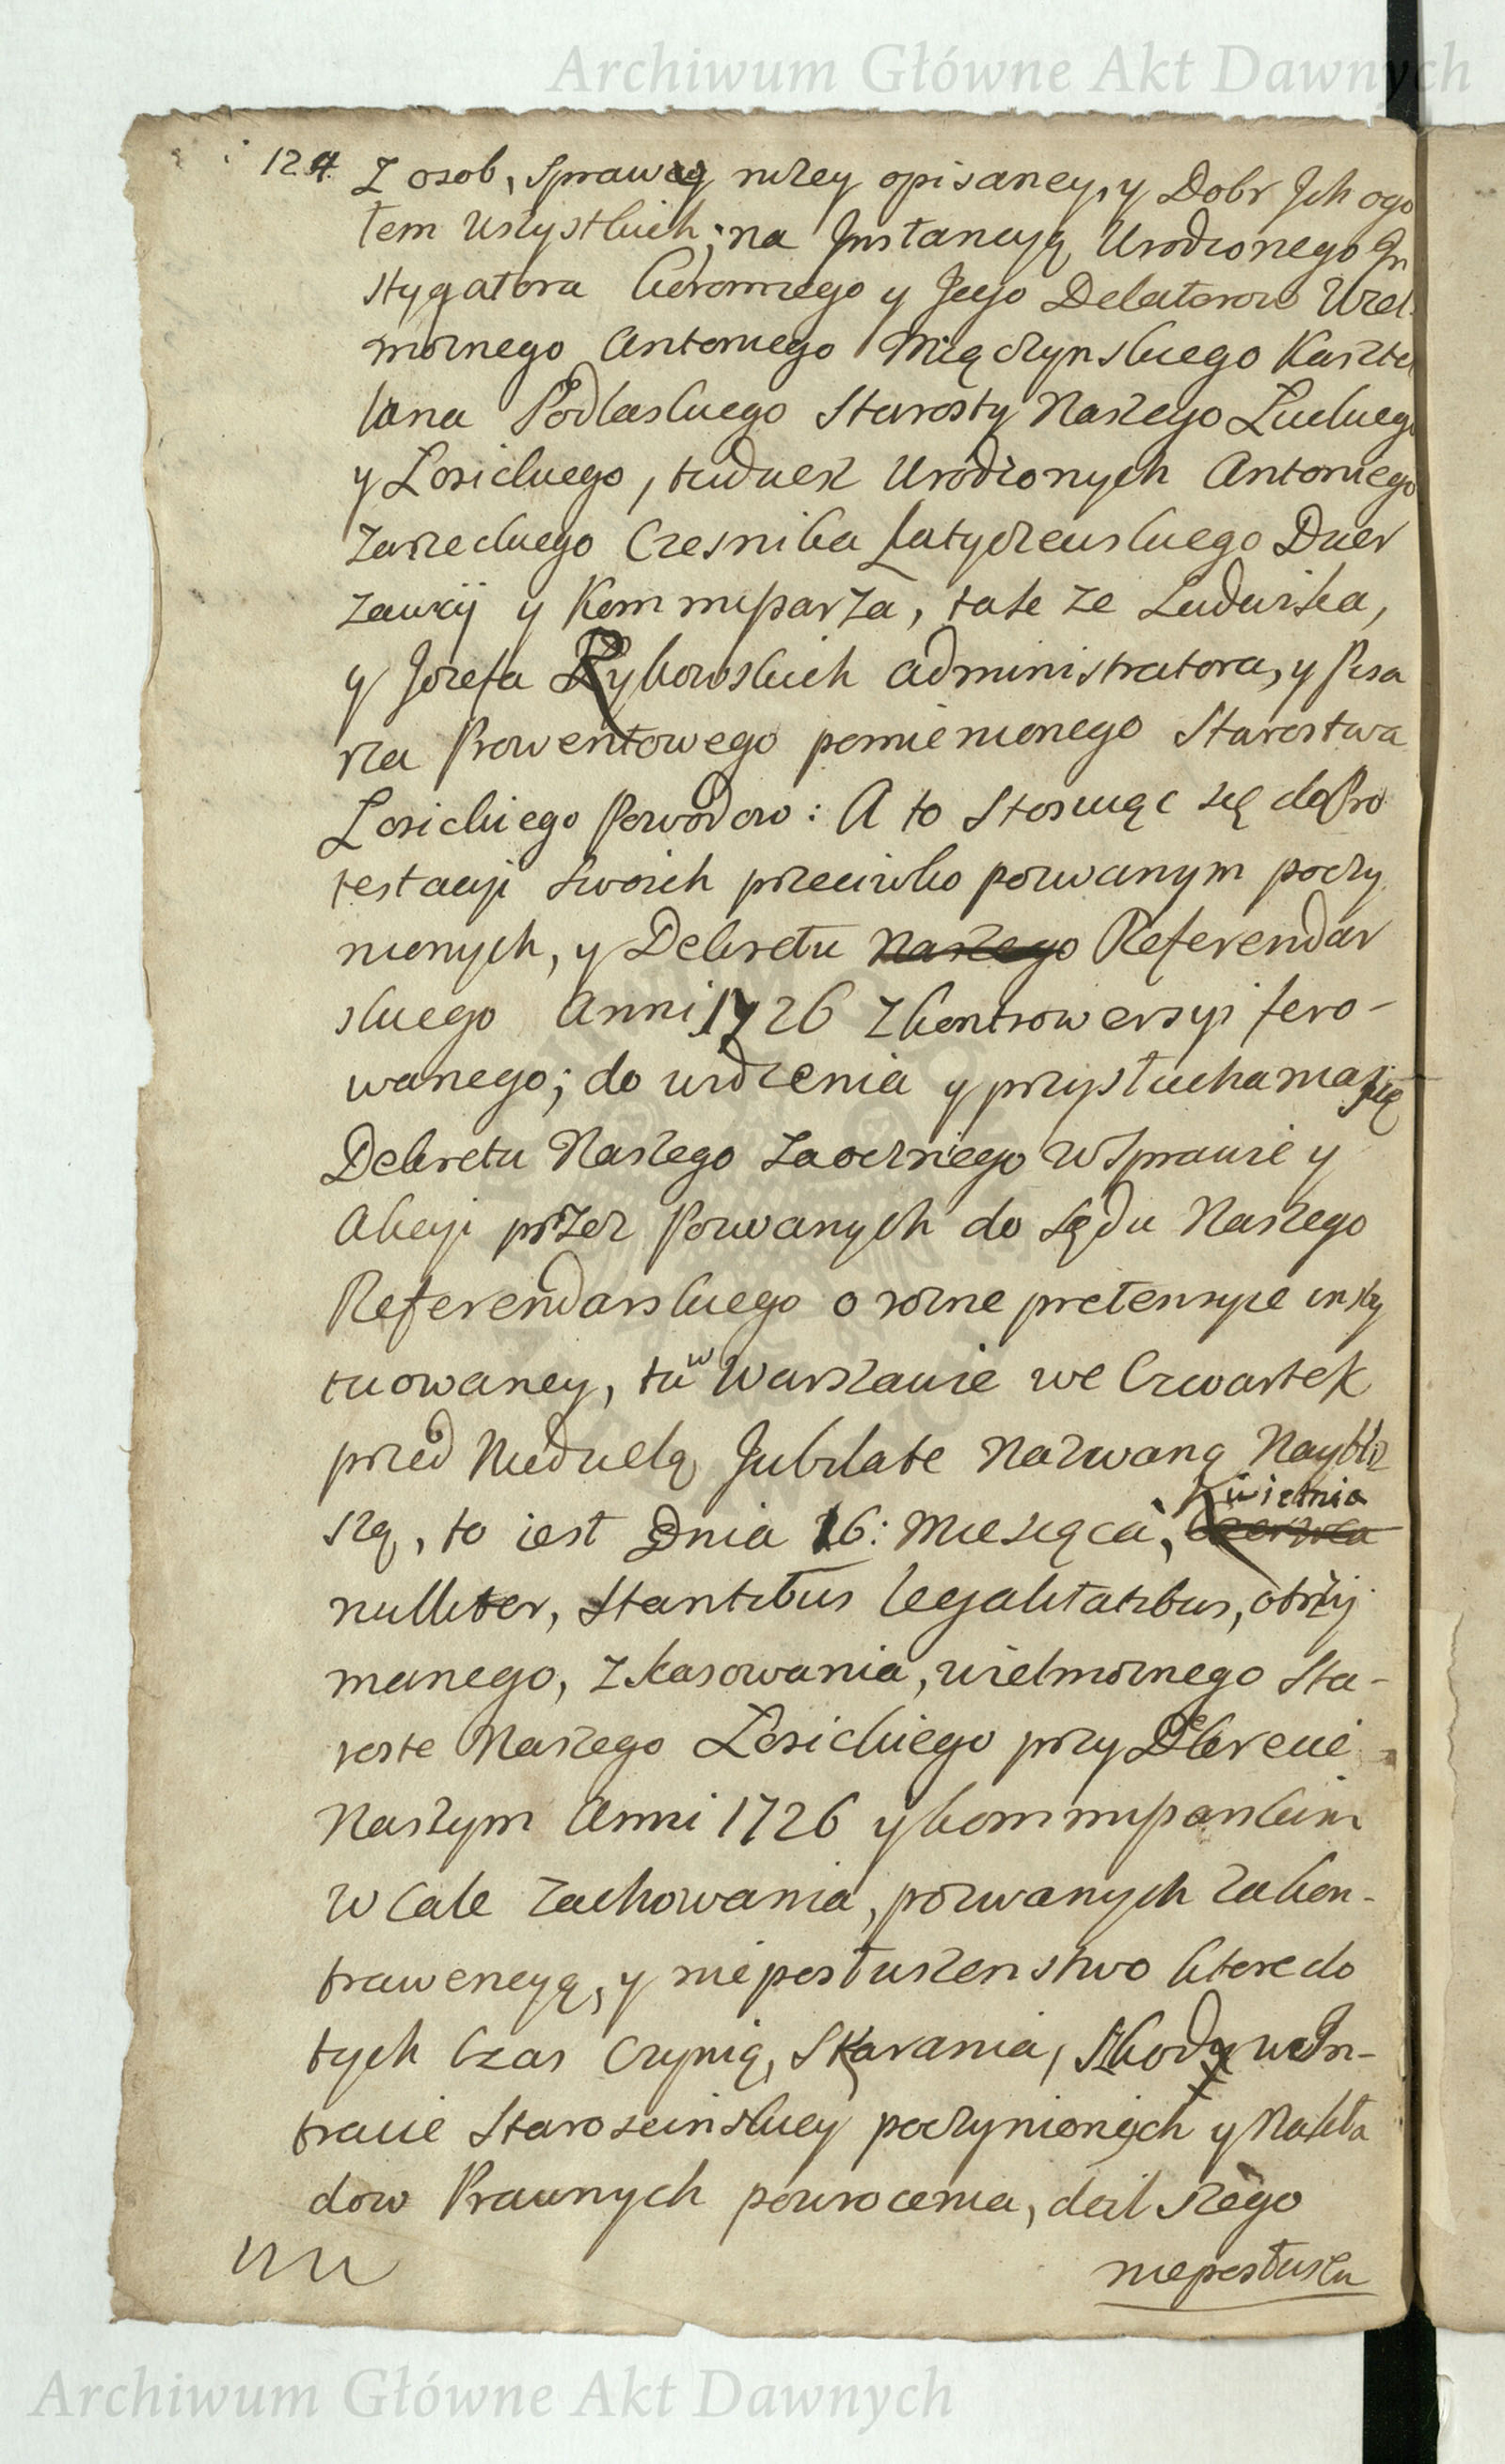 Archiwum Główne Akt Dawnych
124 Z osob, sprawy niżey opisaney, y Dobr Jch ogo
łem wszystkich; na Jnstancyą Urodzonego Jn
stygatora Coronnego y Jego Delatorow Wiel-
możnego Antoniego Miączynskiego Kaszte
lana Podlaskiego Starosty Naszego Łuckiego
y Łosickiego, tudziesz Urodzonych Antoniego
Zarzeckiego Czesnika Latyczewskiego Dzier
zawcy y Kommissarza, także Ludwika,
y Jozefa Rykowskich administratora, y Pisa
rza Prowentowego pomienionego Starostwa
Łosickiego Powodow: A to stosuiąc się do Pro
testacyi swoich przeciwko pozwanym poczy
nionych, y Dekretu Naszego Referendar
skiego Anni 1726 z kontrowersyi fero-
wanego; do widzenia y przysłuchania się
Dekretu Naszego zaocznego w Sprawie y
Akcyi przez Pozwanych do Sądu Naszego
Referendarskiego o rożne pretensye insty
tuowaney, tu w Warszawie we Czwartek
przed Niedzielą Jubilate Nazwaną Naybliż
szą, to iest Dnia 16: Miesiąca, Kwietnia Czerwca
nulliter, stantibus legalitatibus, otrzy
manego, zkasowania, wielmożnego Sta-
roste Naszego Łosickiego przy Dekrecie
Naszym Anni 1726 y kommissarskim
w cale zachowania, pozwanych za kon-
trawencyą, y nieposłuszenstwo ktore do
tych czas czynią, skarania, Szkody w Jn-
tracie Starościnskiey poczynionych y Nakła
dow Prawnych powrocenia, dalszego
nieposłusze
Archiwum Główne Akt Dawnych